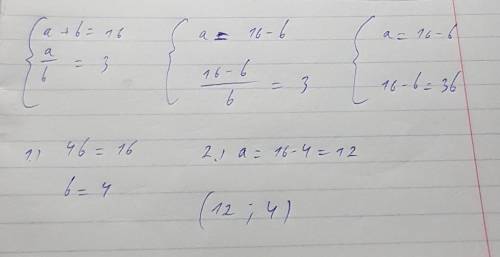 a + b = 16
a/b = 3
a = 16 - b
(16 - b)/b = 3
a = 16 - b
16 - b = 3b
1.) 4b = 16
b = 4
2.) a = 16 - 4 = 12
(12 ; 4)